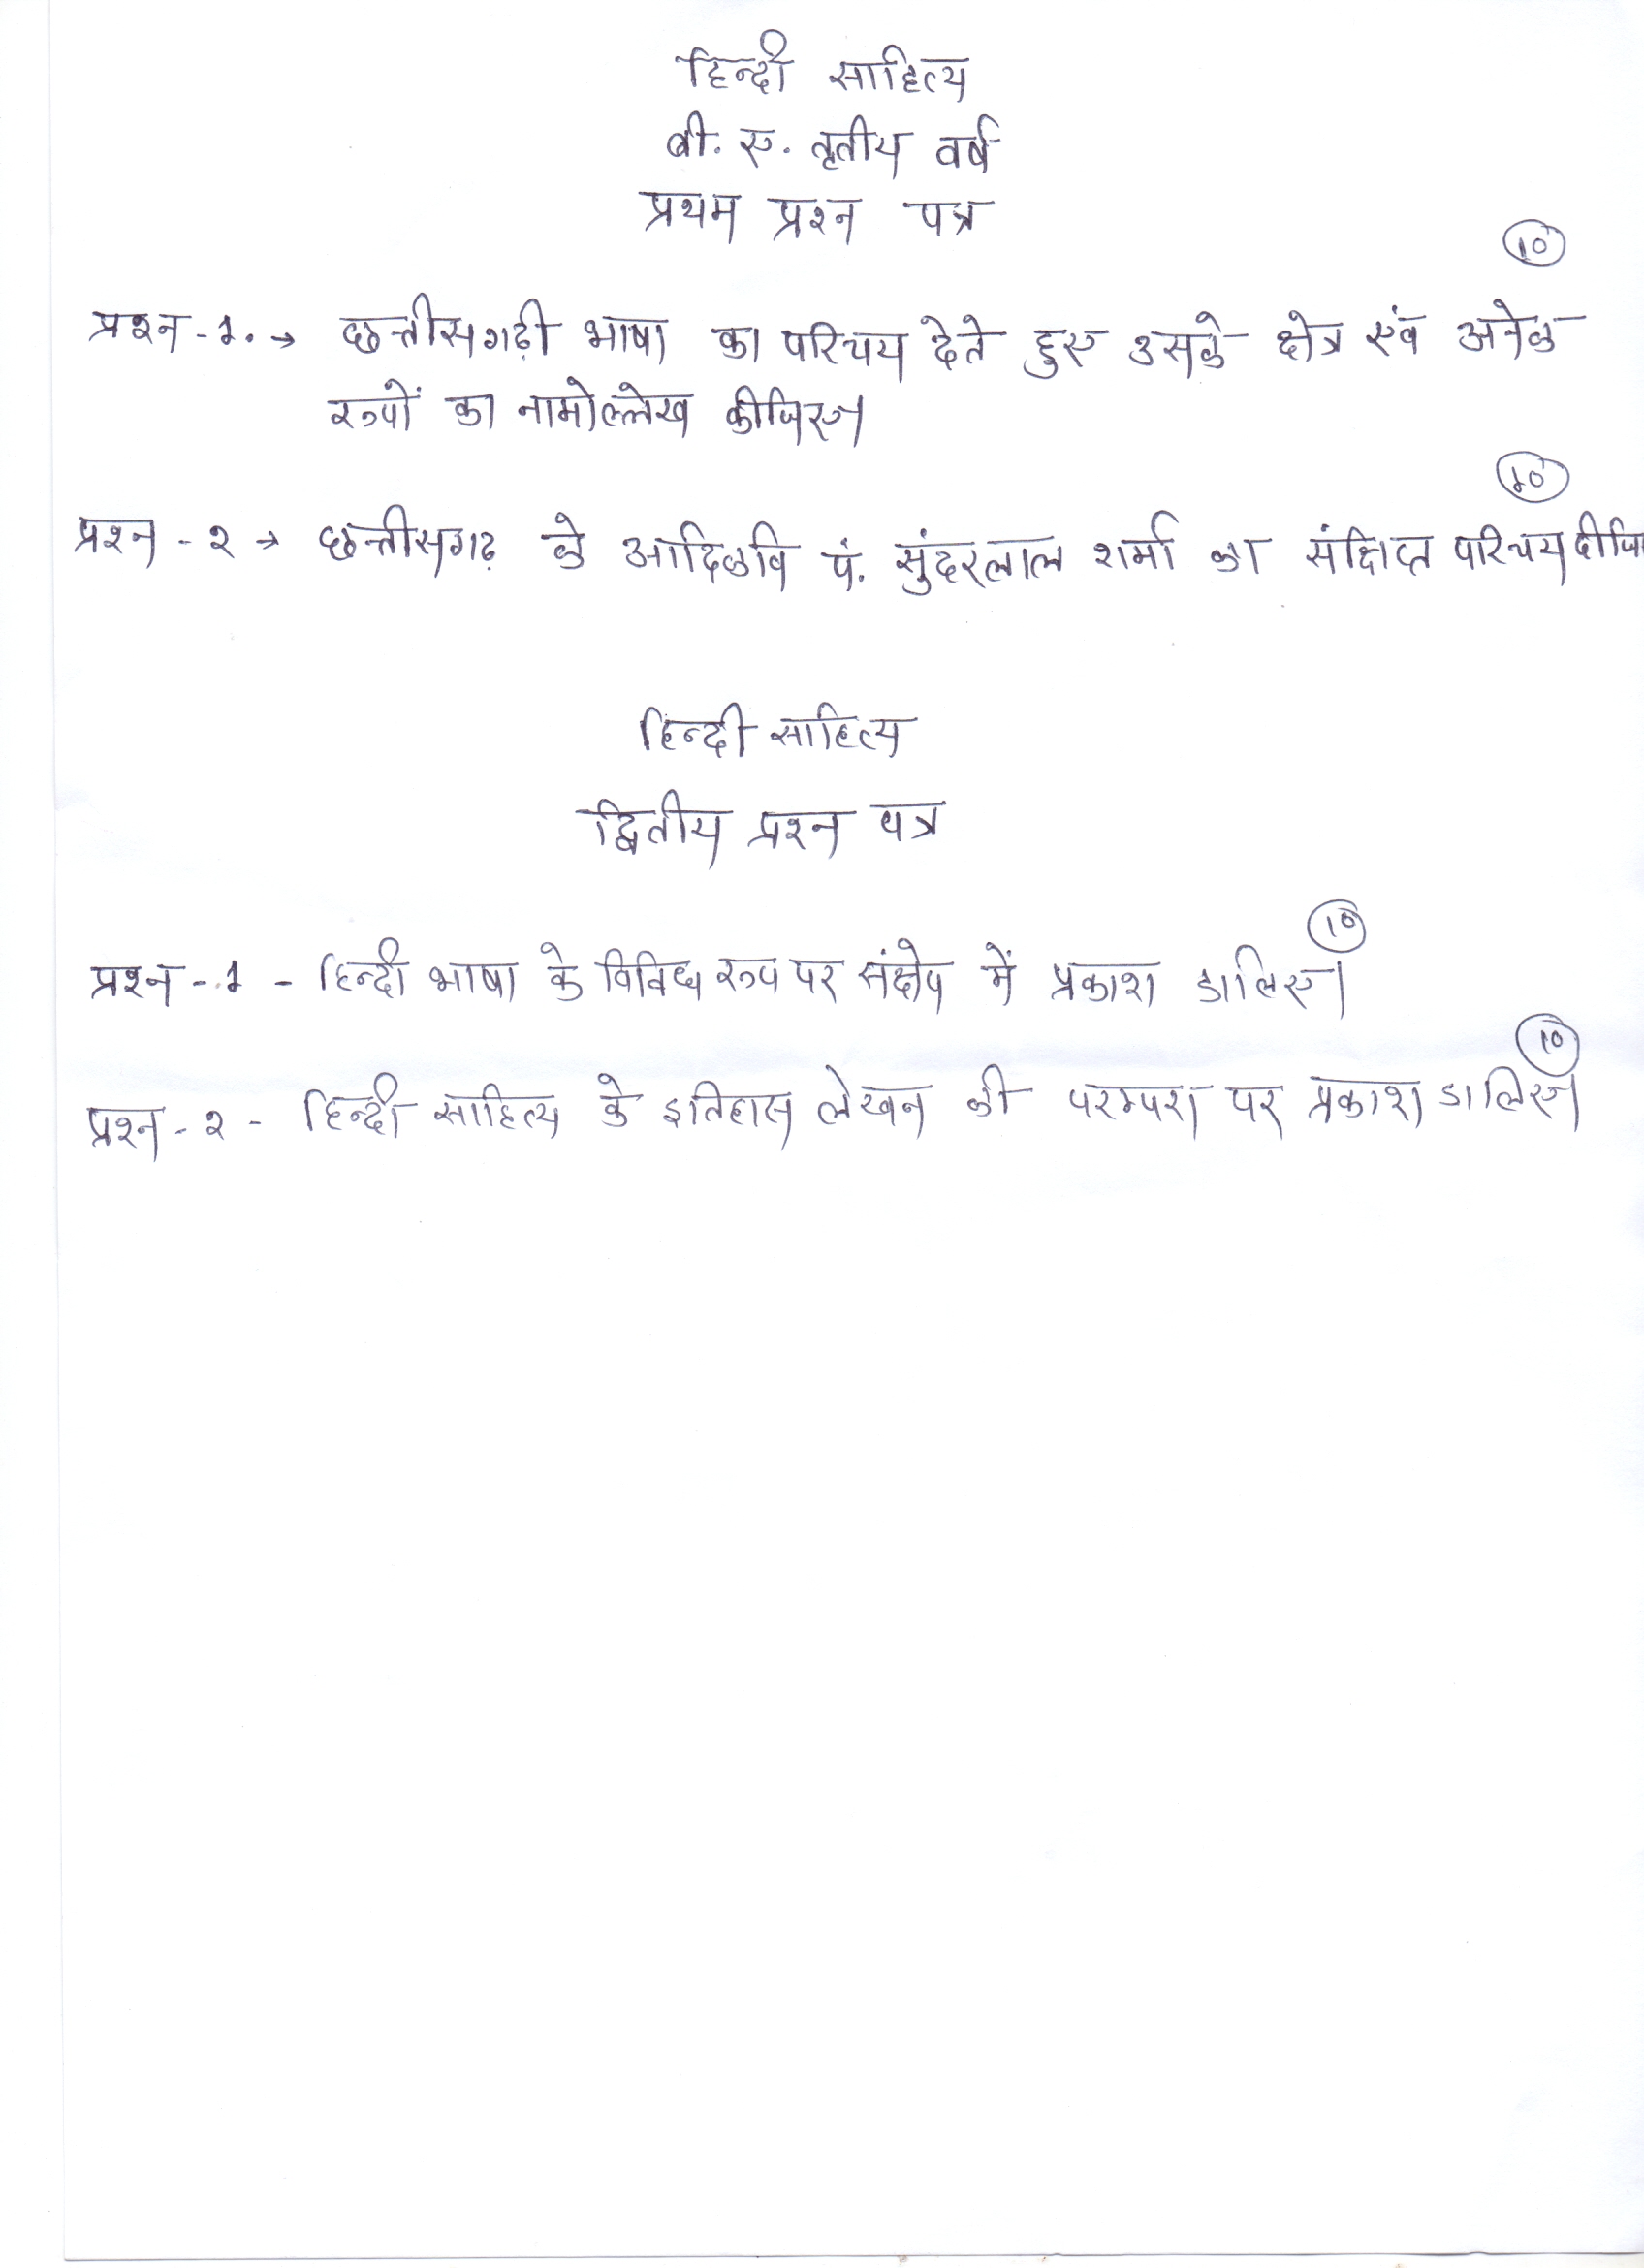 हिन्दी साहित्य
बी. ए. तृतीय वर्ष
प्रथम प्रश्न पत्र
10
प्रश्न -1. → छत्तीसगढ़ी भाषा का परिचय देते हुए उसके क्षेत्र एंव अनेक
रूपों का नामोल्लेख कीजिए।
10
प्रश्न - २ → छत्तीसगढ़ के आदिकवि पं. सुंदरलाल शर्मा का संक्षिप्त परिचय दीजि
हिन्दी साहित्य
द्वितीय प्रश्न पत्र
10
प्रश्न - 1 - हिन्दी भाषा के विविध रूप पर संक्षेप में प्रकाश डालिए।
10
प्रश्न - २ - हिन्दी साहित्य के इतिहास लेखन की परम्परा पर प्रकाश डालिए।